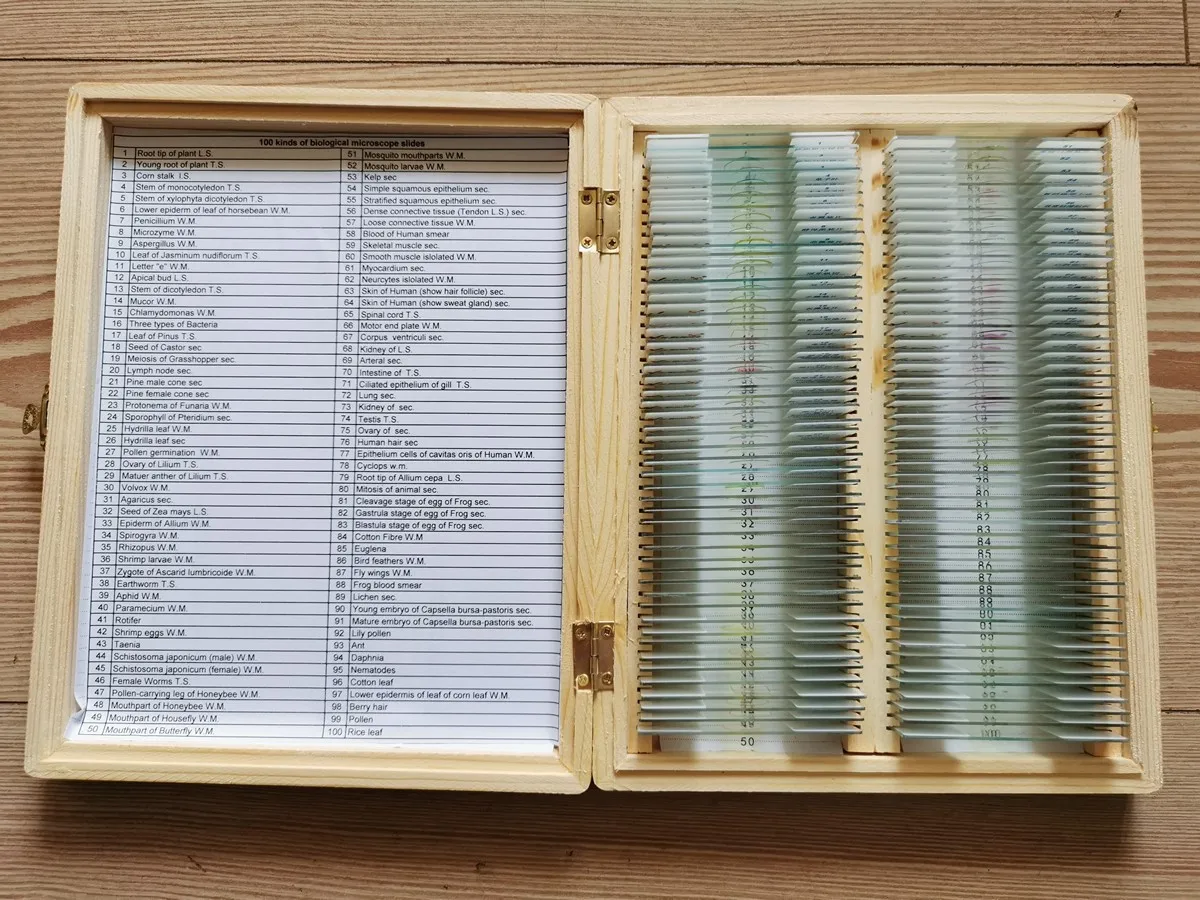 100 kinds of biological microscope slides
1 Root tip of plant L.S. 51 Mosquito mouthparts W.M.
2 Young root of plant T.S. 52 Mosquito larvae W.M.
3 Corn stalk I.S. 53 Kelp sec
4 Stem of monocotyledon T.S. 54 Simple squamous epithelium sec.
5 Stem of xylophyta dicotyledon T.S. 55 Stratified squamous epithelium sec.
6 Lower epiderm of leaf of horsebean W.M. 56 Dense connective tissue (Tendon L.S.) sec.
7 Penicillium W.M. 57 Loose connective tissue W.M.
8 Microzyme W.M. 58 Blood of Human smear
9 Aspergillus W.M. 59 Skeletal muscle sec.
10 Leaf of Jasminum nudiflorum T.S. 60 Smooth muscle islolated W.M.
11 Letter "e" W.M. 61 Myocardium sec.
12 Apical bud L.S. 62 Neurcytes islolated W.M.
13 Stem of dicotyledon T.S. 63 Skin of Human (show hair follicle) sec.
14 Mucor W.M. 64 Skin of Human (show sweat gland) sec.
15 Chlamydomonas W.M. 65 Spinal cord T.S.
16 Three types of Bacteria 66 Motor end plate W.M.
17 Leaf of Pinus T.S. 67 Corpus ventriculi sec.
18 Seed of Castor sec 68 Kidney of L.S.
19 Meiosis of Grasshopper sec. 69 Arteral sec.
20 Lymph node sec. 70 Intestine of T.S.
21 Pine male cone sec 71 Ciliated epithelium of gill T.S.
22 Pine female cone sec 72 Lung sec.
23 Protonema of Funaria W.M. 73 Kidney of sec.
24 Sporophyll of Pteridium sec. 74 Testis T.S.
25 Hydrilla leaf W.M. 75 Ovary of sec.
26 Hydrilla leaf sec 76 Human hair sec
27 Pollen germination W.M. 77 Epithelium cells of cavitas oris of Human W.M.
28 Ovary of Lilium T.S. 78 Cyclops w.m.
29 Matuer anther of Lilium T.S. 79 Root tip of Allium cepa L.S.
30 Volvox W.M. 80 Mitosis of animal sec.
31 Agaricus sec. 81 Cleavage stage of egg of Frog sec.
32 Seed of Zea mays L.S. 82 Gastrula stage of egg of Frog sec.
33 Epiderm of Allium W.M. 83 Blastula stage of egg of Frog sec.
34 Spirogyra W.M. 84 Cotton Fibre W.M
35 Rhizopus W.M. 85 Euglena
36 Shrimp larvae W.M. 86 Bird feathers W.M.
37 Zygote of Ascarid lumbricoide W.M. 87 Fly wings W.M.
38 Earthworm T.S. 88 Frog blood smear
39 Aphid W.M. 89 Lichen sec.
40 Paramecium W.M. 90 Young embryo of Capsella bursa-pastoris sec.
41 Rotifer 91 Mature embryo of Capsella bursa-pastoris sec.
42 Shrimp eggs W.M. 92 Lily pollen
43 Taenia 93 Ant
44 Schistosoma japonicum (male) W.M. 94 Daphnia
45 Schistosoma japonicum (female) W.M. 95 Nematodes
46 Female Worms T.S. 96 Cotton leaf
47 Pollen-carrying leg of Honeybee W.M. 97 Lower epidermis of leaf of corn leaf W.M.
48 Mouthpart of Honeybee W.M. 98 Berry hair
49 Mouthpart of Housefly W.M. 99 Pollen
50 Mouthpart of Butterfly W.M. 100 Rice leaf
28
30
31
32
50
80
83
84
85
86
87